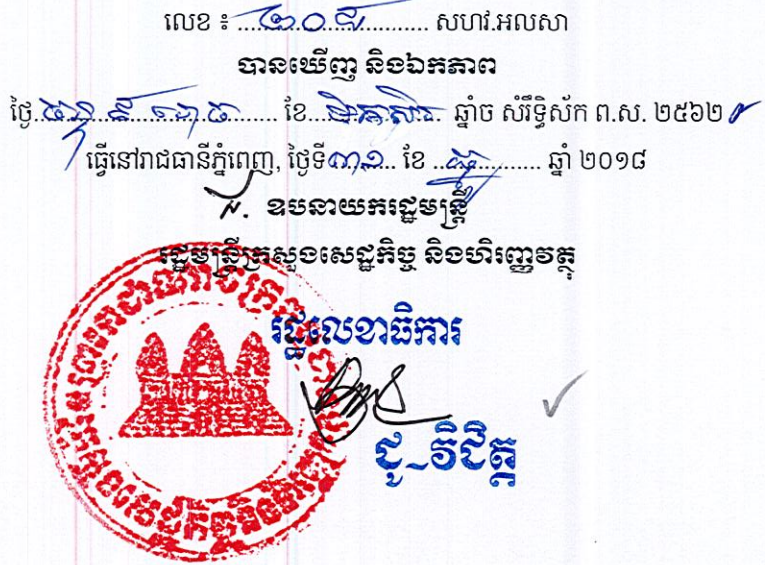 លេខ ៖ ២០៨ សហវ.អលសា
បានឃើញ និងឯកភាព
ថ្ងៃ ខែ មិគសិរ ឆ្នាំច សំរឹទ្ធិស័ក ព.ស. ២៥៦២
ធ្វើនៅរាជធានីភ្នំពេញ, ថ្ងៃទី ៣១ ខែ ធ្នូ ឆ្នាំ ២០១៨
ឧបនាយករដ្ឋមន្ត្រី
រដ្ឋមន្ត្រីក្រសួងសេដ្ឋកិច្ច និងហិរញ្ញវត្ថុ
រដ្ឋលេខាធិការ
ជូ-វិជិត្ត